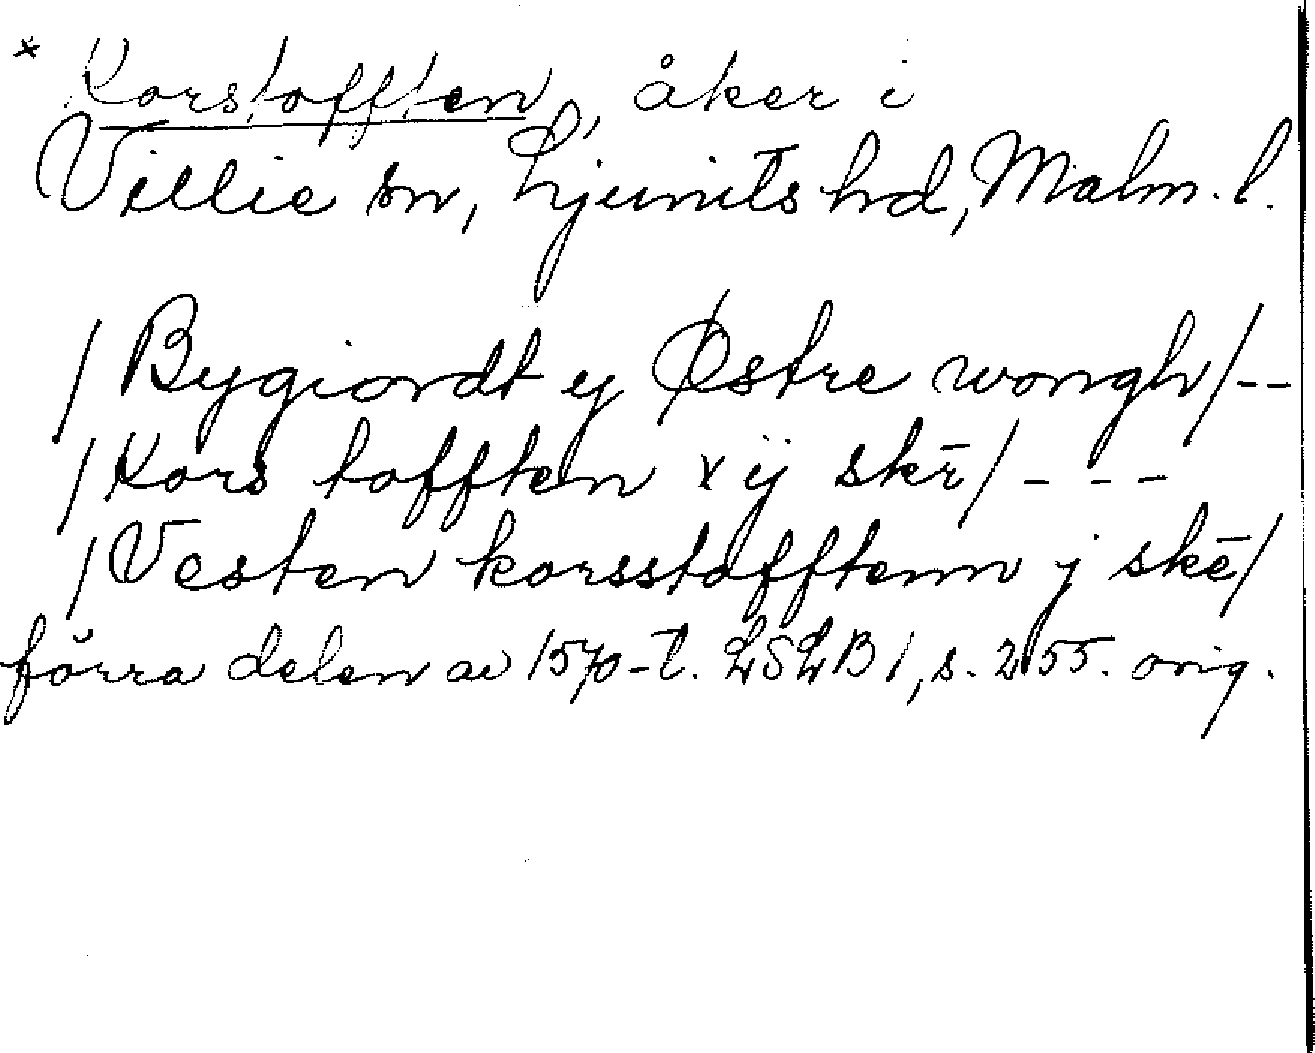 * Korstofften, åker i
Villie sn, Ljunits hd, Malm. l.
/ Bygiordt ij Østre wongh /--
/ Kors tofften x ij skr̄ / - - -
/ Vesten korsstofftenn j skē /
förra delen av 1570-t. LSLB 1, s. 255. orig.